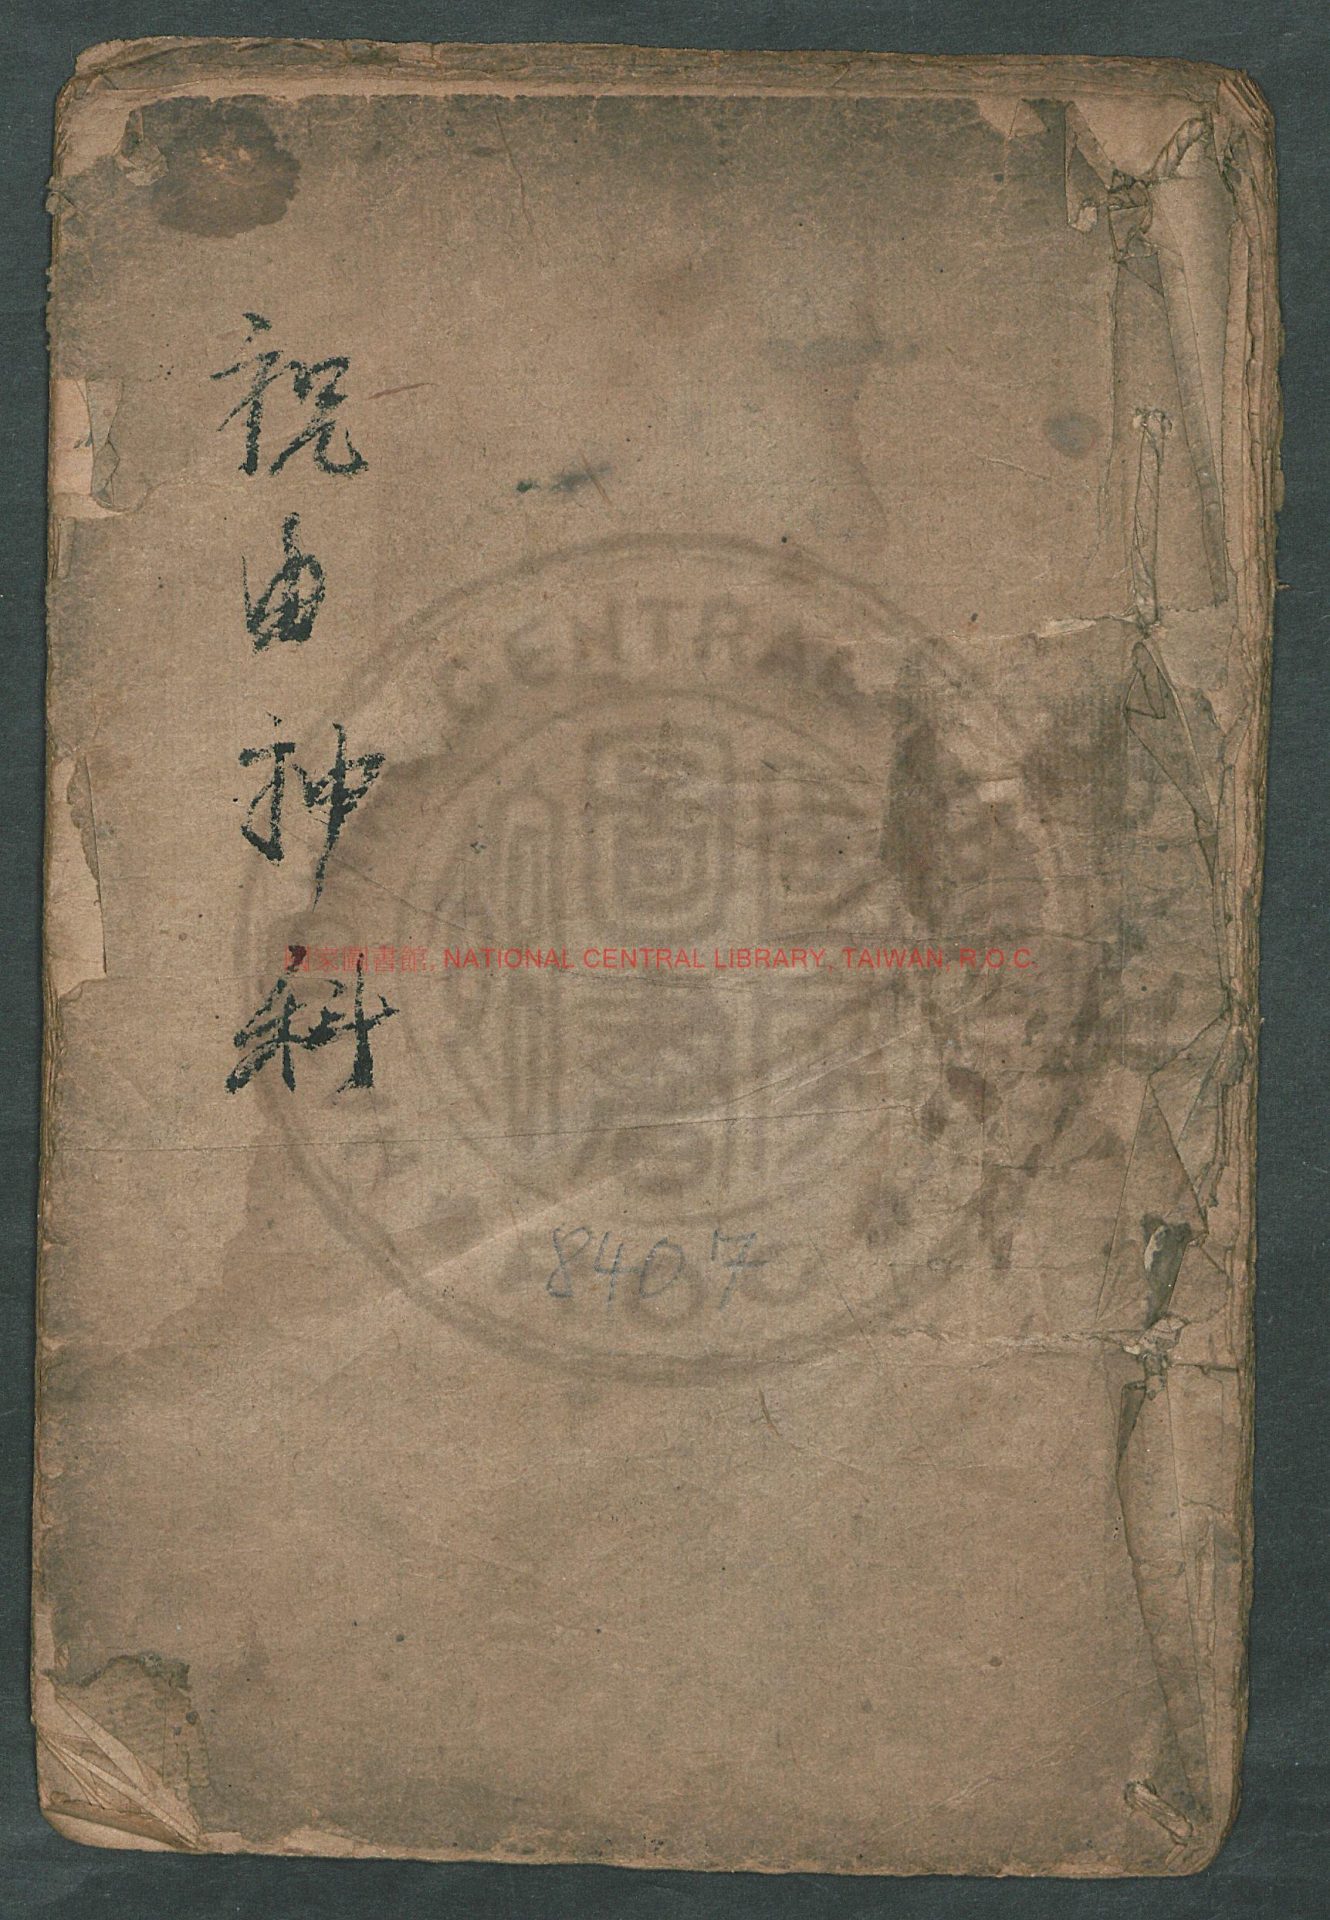 祝由神科
國家圖書館, NATIONAL CENTRAL LIBRARY, TAIWAN, R.O.C.
CENTRAL
8407